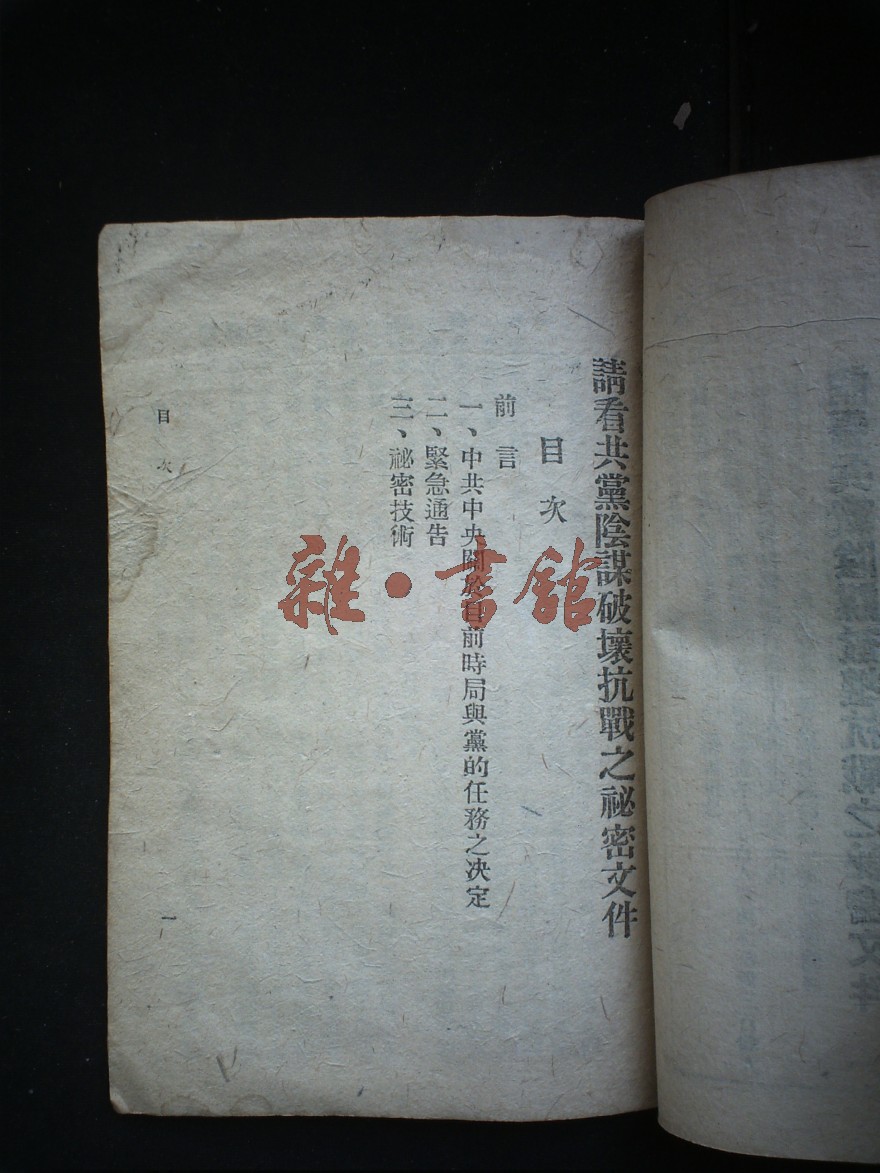 請看共黨陰謀破壞抗戰之祕密文件
目次
前言
一、中共中央關於目前時局與黨的任務之决定
二、緊急通告
三、祕密技術
目次
一
雜·書館